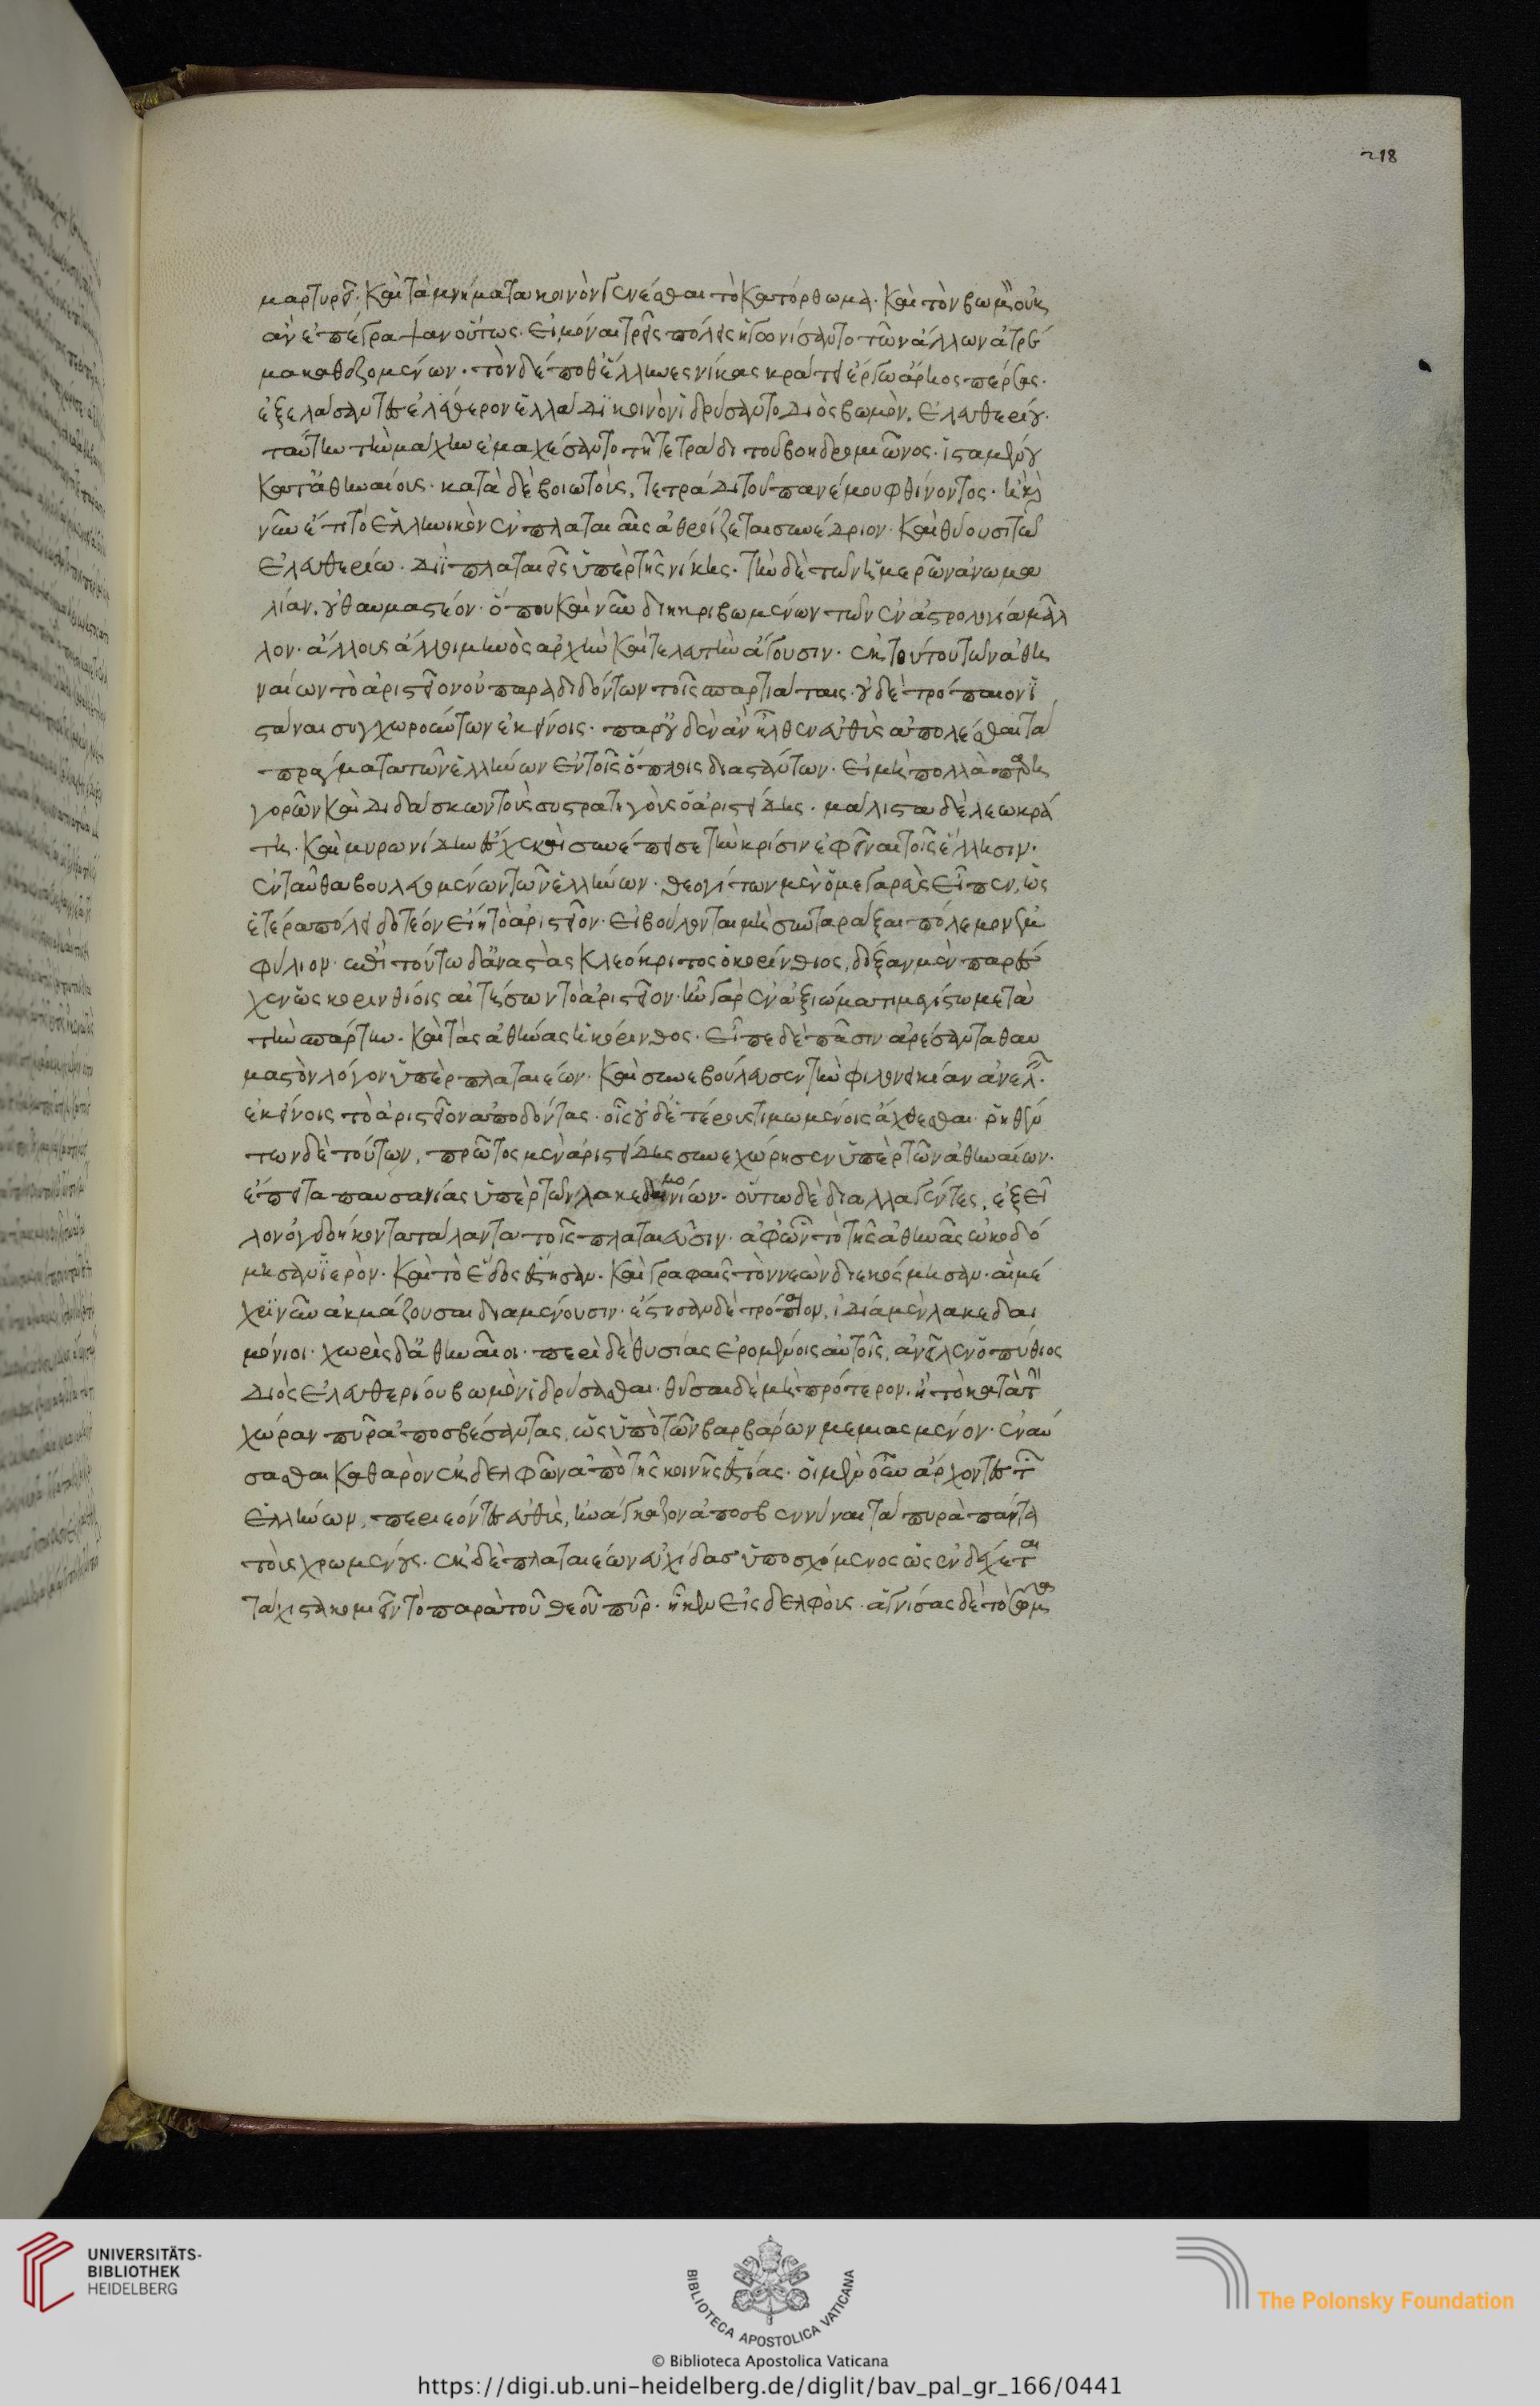 218
μαρτυρεῖ· καὶ τὰ μνήματα κοινὸν γενέσθαι τὸ κατόρθωμα· καὶ τὸν βωμὸν οὐκ
ἂν ἐπέγραψαν οὕτως· εἰ μόναι τρεῖς πόλεις ἠγωνίσαντο τῶν ἄλλων ἀτρέ
μα καθεζομένων· τὸν δέ ποθ' ἕλληνες νίκας κράτει ἔργω ἄρηος πέρσας·
ἐξελάσαντες ἐλεύθερον ἑλλάδι κοινὸν ἱδρύσαντο διὸς βωμὸν, ἐλευθερίου·
ταύτην τὴν μάχην ἐμαχέσαντο τῆ τετράδι τοῦ βοηδρομιῶνος· ἱσταμένου
κατ' ἀθηναίους· κατὰ δὲ βοιωτοὺς, τετράδι τοῦ πανέμου φθίνοντος· ἧ καὶ
νῦν ἔτι τὸ ἑλληνικὸν ἐν πλαταιαῖς ἀθροίζεται συνέδριον· καὶ θύουσι τῶ
ἐλευθερίω· διῒ πλαταιεῖς ὑπὲρ τῆς νίκης· τὴν δὲ τῶν ἡμερῶν ἀνωμα
λίαν, οὐ θαυμαστέον· ὅπου καὶ νῦν διηκριβωμένων τῶν ἐν ἀστρολογία μᾶλ
λον· ἄλλοις ἄλλοι μηνὸς ἀρχὴν καὶ τελευτὴν ἄγουσιν· ἐκ τούτου τῶν ἀθη
ναίων τὸ ἀριστεῖον οὐ παραδιδόντων τοῖς σπαρτιάταις· οὐδὲ τρόπαιον ἱ
στάναι συγχωρούντων ἐκείνοις· παρ' οὐδὲν ἂν ἦλθεν εὐθὺς ἀπολέσθαι τὰ
πράγματα τῶν ἑλλήνων ἐν τοῖς ὅπλοις διαστάντων· εἰ μὴ πολλὰ παρη
γορῶν καὶ διδάσκων τοὺς συστρατηγοὺς ὁ ἀριστείδης· μάλιστα δὲ λεωκρά
τη· καὶ μυρωνίδην ἔσχε καὶ συνέπεισε τὴν κρίσιν ἐφεῖναι τοῖς ἕλλησιν·
ἐνταῦθα βουλευομένων τῶν ἑλλήνων· θεογίτων μὲν ὁ μεγαρεὺς εἶπεν, ὡς
ἑτέρα πόλει δοτέον εἴη τὸ ἀριστεῖον· εἰ βούλονται μὴ συνταράξαι πόλεμον ἐμ
φύλιον· ἐπὶ τούτω δ' ἀναστὰς κλεόκριτος ὁ κορίνθιος, δόξαν μὲν παρέ
χεν ὡς κορινθίοις αἰτήσων τὸ ἀριστεῖον· ἦν γὰρ ἐν ἀξιώματι μεγίστω μετὰ
τὴν σπάρτην· καὶ τὰς ἀθήνας ἡ κόρινθος· εἶπε δὲ πᾶσιν ἀρέσαντα θαυ
μαστὸν λόγον ὑπὲρ πλαταιέων· καὶ συνεβούλευσεν τὴν φιλονεικίαν ἀνελεῖν·
ἐκείνοις τὸ ἀριστεῖον ἀποδόντας· οἷς οὐδ' ἑτέρους τιμωμένοις ἄχθεσθαι· ῥηθέν
των δὲ τούτων, πρῶτος μὲν ἀριστείδης συνεχώρησεν ὑπὲρ τῶν ἀθηναίων·
ἔπειτα παυσανίας ὑπὲρ τῶν λακεδαιμονίων· οὕτω δὲ διαλλαγέντες, ἐξεῖ
λον ὀγδοήκοντα τάλαντα τοῖς πλαταιεῦσιν· ἀφ' ὧν τὸ τῆς ἀθηνᾶς ὠκοδό
μησαν ἱερὸν· καὶ τὸ ἕδος ἔστησαν· καὶ γραφαῖς τὸν νεὼν διεκόσμησαν· αἳ μέ
χρι νῦν ἀκμάζουσαι διαμένουσιν· ἔστησαν δὲ τρόπαιον, ἰδία μὲν λακεδαι
μόνιοι· χωρὶς δ' ἀθηναῖοι· περὶ δὲ θυσίας ἐρομένοις αὐτοῖς, ἀνεῖλεν ὁ πύθιος
διὸς ἐλευθερίου βωμὸν ἱδρύσασθαι· θῦσαι δὲ μὴ πρότερον, ἢ τὸ κατὰ τὴν
χώραν πῦρ ἀποσβέσαντας, ὡς ὑπὸ τῶν βαρβάρων μεμιασμένον· ἐναύ
σασθαι καθαρὸν ἐκ δελφῶν ἀπὸ τῆς κοινῆς ἑστίας· οἱ μὲν οὖν ἄρχοντες τῶν
ἑλλήνων, περιϊόντες εὐθὺς, ἠνάγκαζον ἀποσβεννύναι τὰ πυρὰ πάντα
τοὺς χρωμένους· ἐκ δὲ πλαταιέων εὐχίδας ὑποσχόμενος ὡς ἐνδέχεται
τάχιστα κομιεῖν τὸ παρὰ τοῦ θεοῦ πῦρ· ἧκεν εἰς δελφοὺς· ἁγνίσας δὲ τὸ σῶμα
UNIVERSITÄTS-
BIBLIOTHEK
HEIDELBERG
BIBLIOTECA APOSTOLICA VATICANA
The Polonsky Foundation
© Biblioteca Apostolica Vaticana
https://digi.ub.uni-heidelberg.de/diglit/bav_pal_gr_166/0441